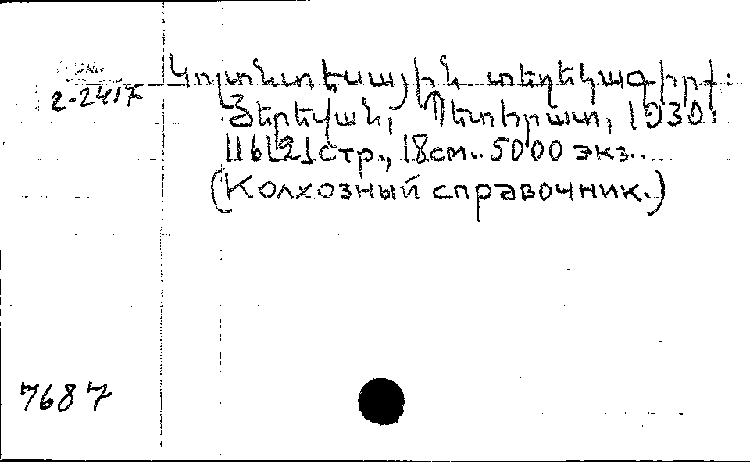 2-2417
Կոլտնտեսային տեղեկագիրք.
Յերեվան, Պետհրատ, 1930.
116[2] стр., 18см.. 5000 экз..
(Колхозный справочник.)
7687